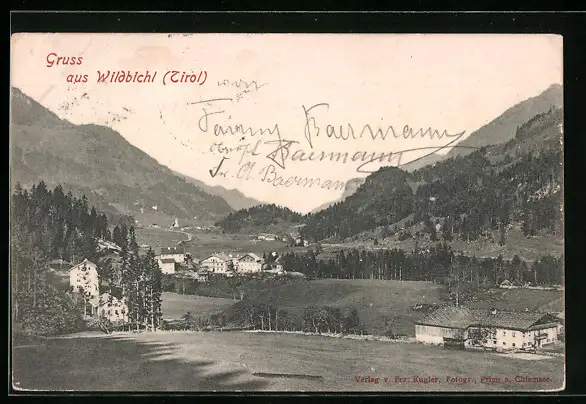 Gruss
aus Wildbichl (Tirol)
Fanny Baermann
Baermann
Baermann
Verlag v. Frz. Kugler, Fotogr., Prien a. Chiemsee.